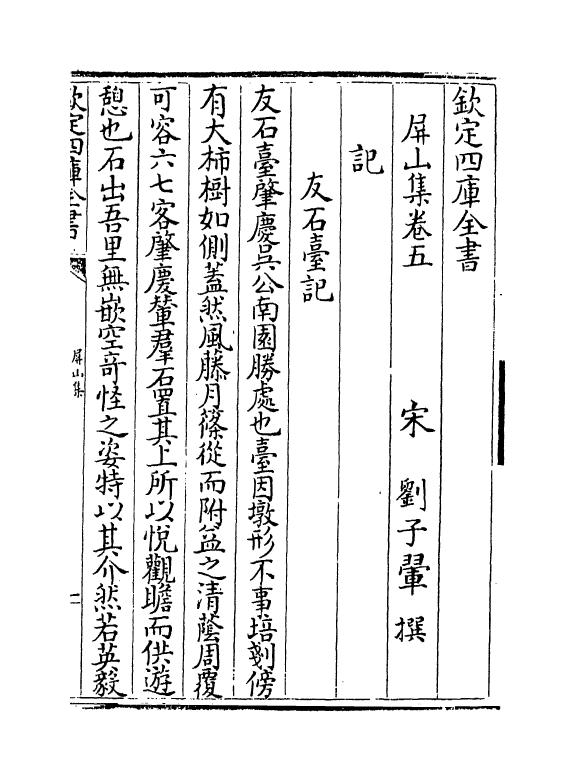 欽定四庫全書
屏山集卷五
宋 劉子翬 撰
記
友石臺記
友石臺肇慶吳公南園勝處也臺因墩形不事培剗傍
有大柿樹如側蓋然風藤月篠從而附益之清蔭周覆
可容六七客肇慶輦羣石置其上所以悅觀瞻而供遊
憩也石出吾里無嵌空竒怪之姿特以其介然若英毅
欽定四庫全書
屏山集
一